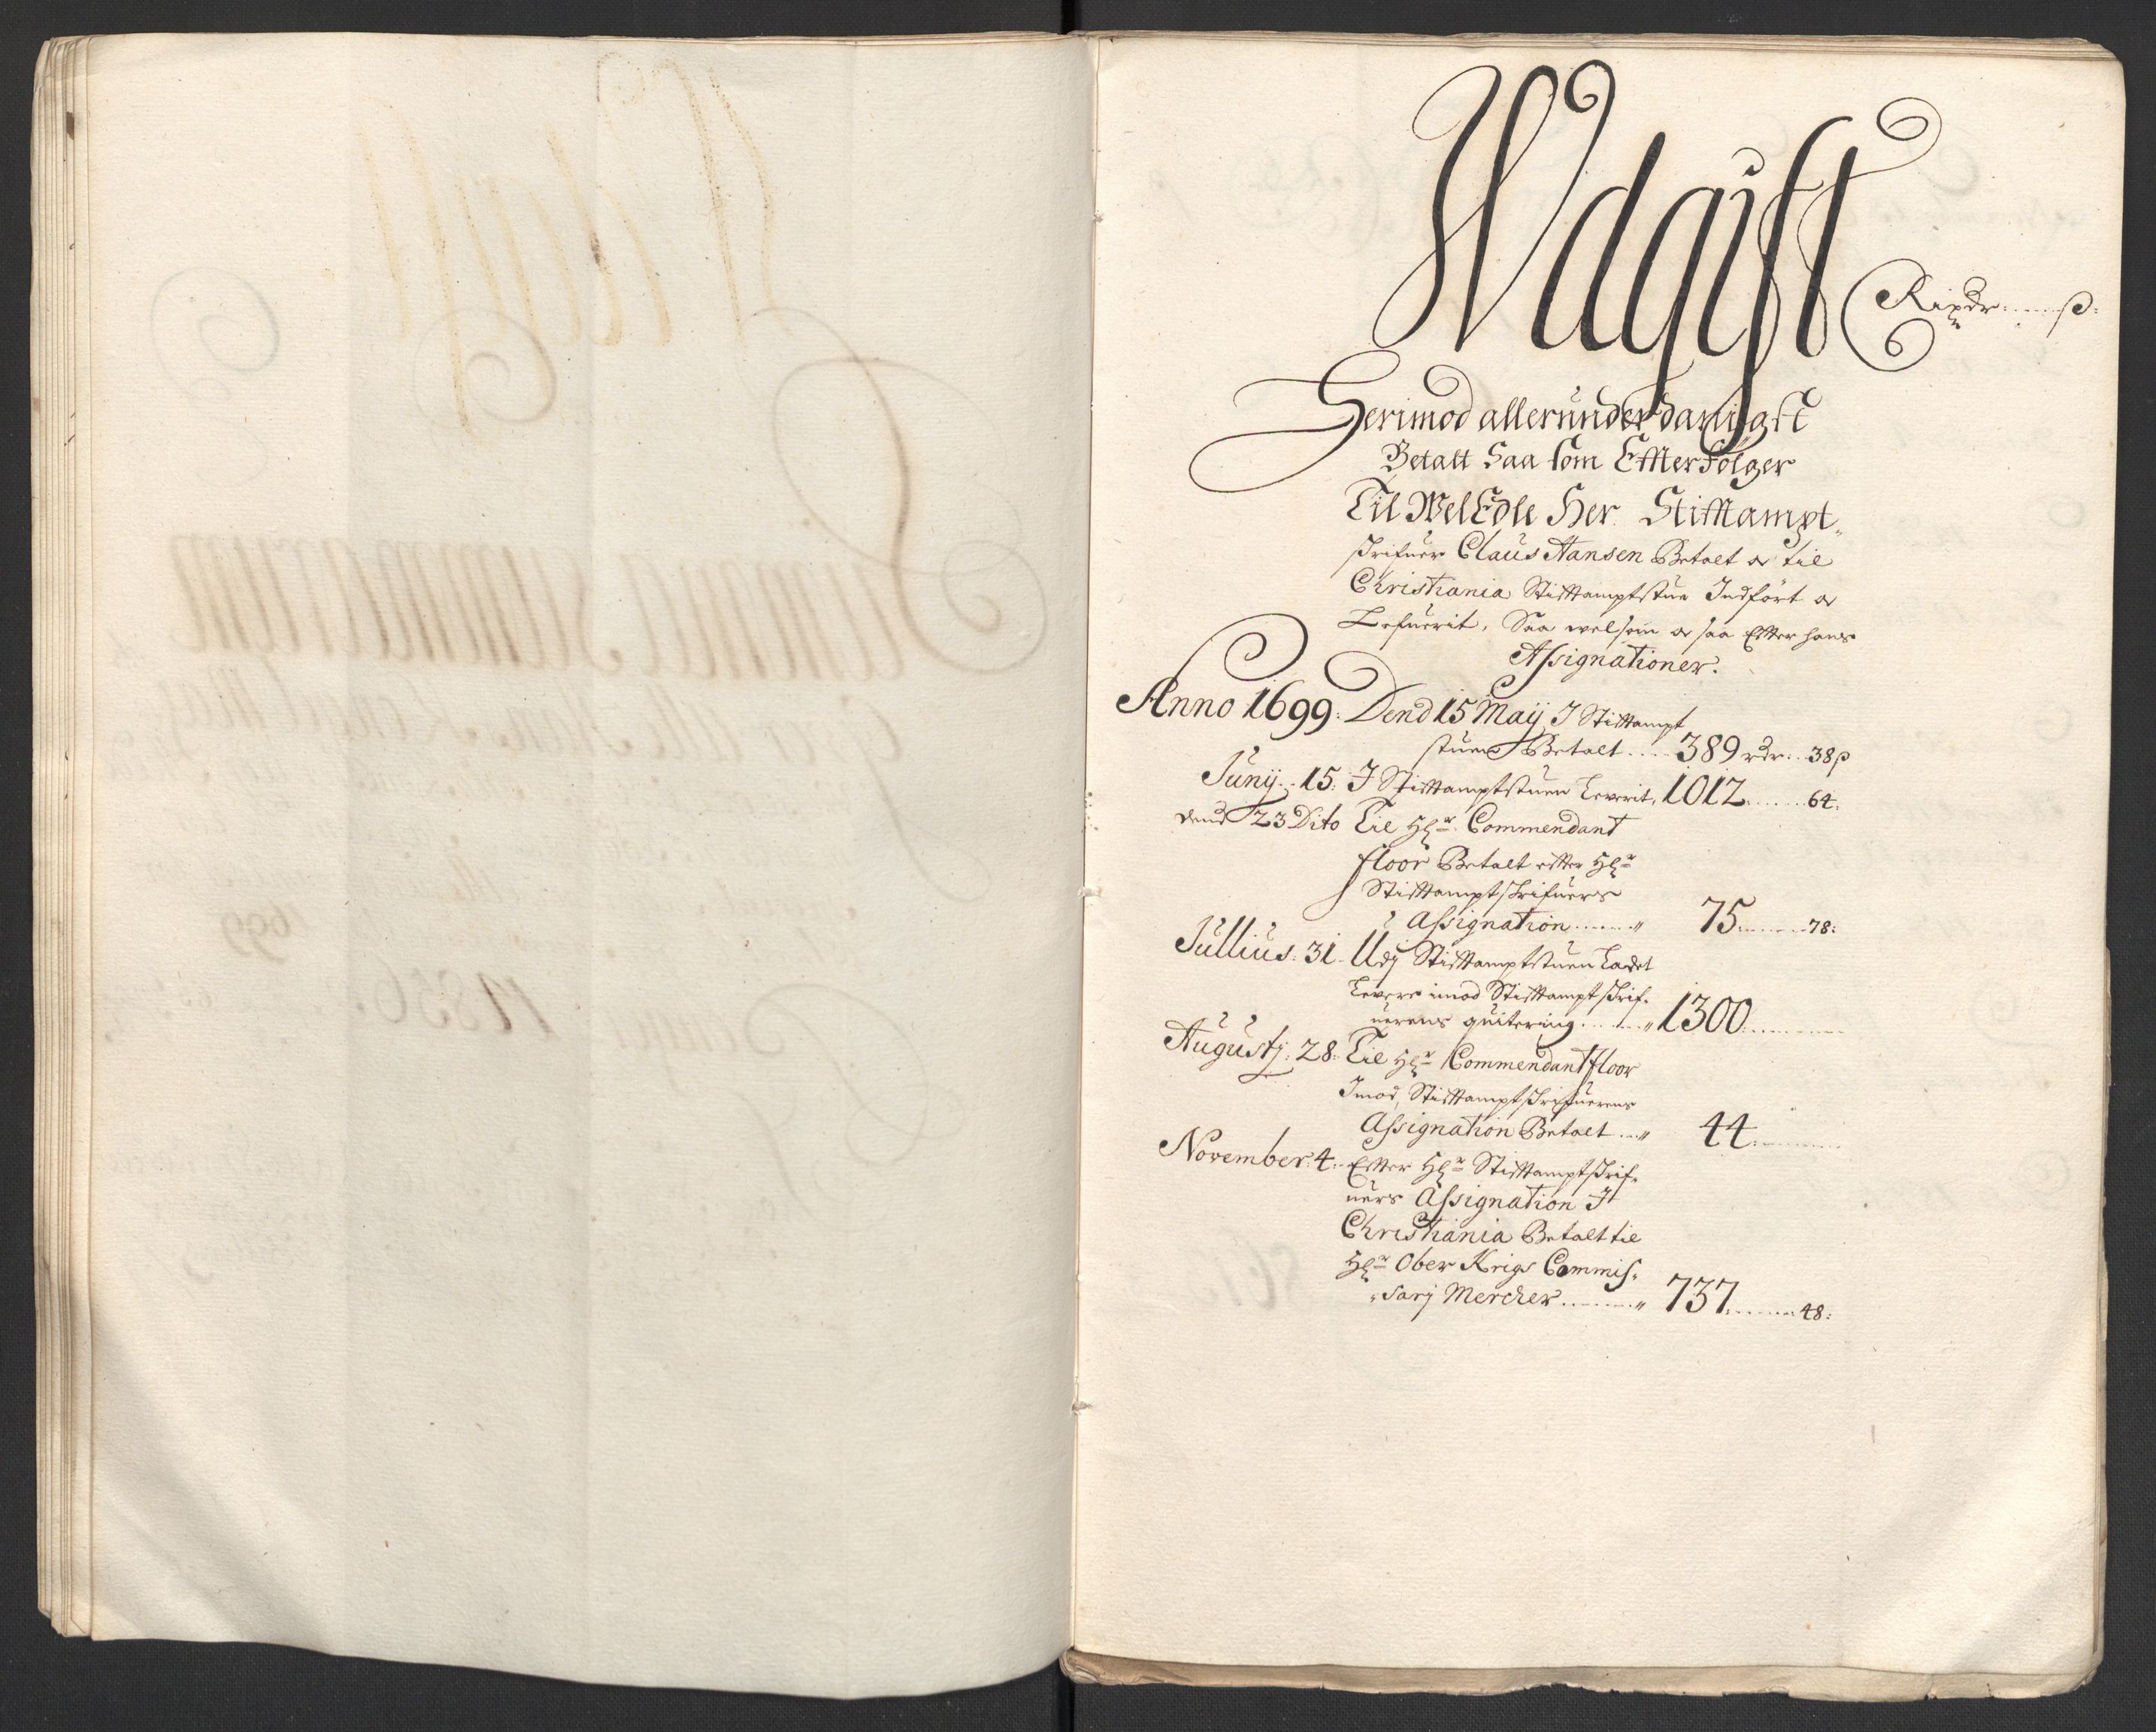 Wdgift
Rixdr: ..... ß:
Herimod allerunderdanigst
Betalt Saa som Effterfølger
Til WelEdle Her Stifftampt„
schrifuer Claus Hansen Betalt oc til
Christiania Stifftamptstue Indført oc
Lefuerit, Saa welsom oc saa Effter hans
Assignationer.
Anno 1699: Dend 15 Maij J Stifftampt
stuen Betalt .... 389 rdr. .. 38 ß
Junij .. 15: J Stifftamptstuen Leverit, 1012 ...... 64:
dend 23 Dito Til Hr: Commendant
floor Betalt effter Hr:
Stifftamptschrifuers
Assignation ....... „ 75 ....... 78:
Jullius: 31. Udj Stifftamptstuen Ladet
Levere imod Stifftamptschrif„
uerens quitering ...... „ 1300 ..........
Augustj: 28: Til Hr: Commendant floor
Jmod, Stifftamptschrifuerens
Assignation Betalt ... „ 44 ..........
November: 4.. Effter Hr: Stifftamptschrif„
uers Assignation J
Christiania Betalt til
Hr: Ober Krigs Commis„
„sarj Mercker ......... „ 737 ........ 48: